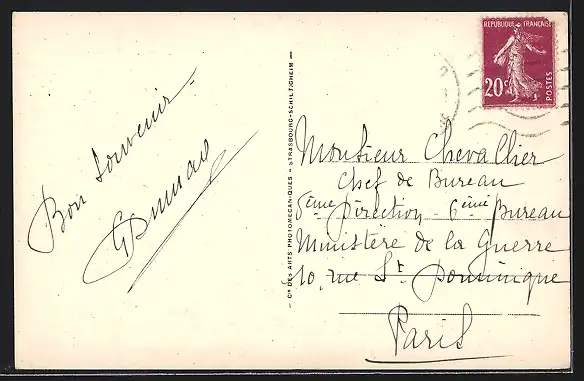 Bon souvenir
RÉPUBLIQUE FRANÇAISE
20c
POSTES
Cie DES ARTS PHOTOMÉCANIQUES – STRASBOURG-SCHILTIGHEIM –
Monsieur Chevallier
Chef de Bureau
5ème Direction 6ème Bureau
Ministère de la Guerre
10, rue St Dominique
Paris